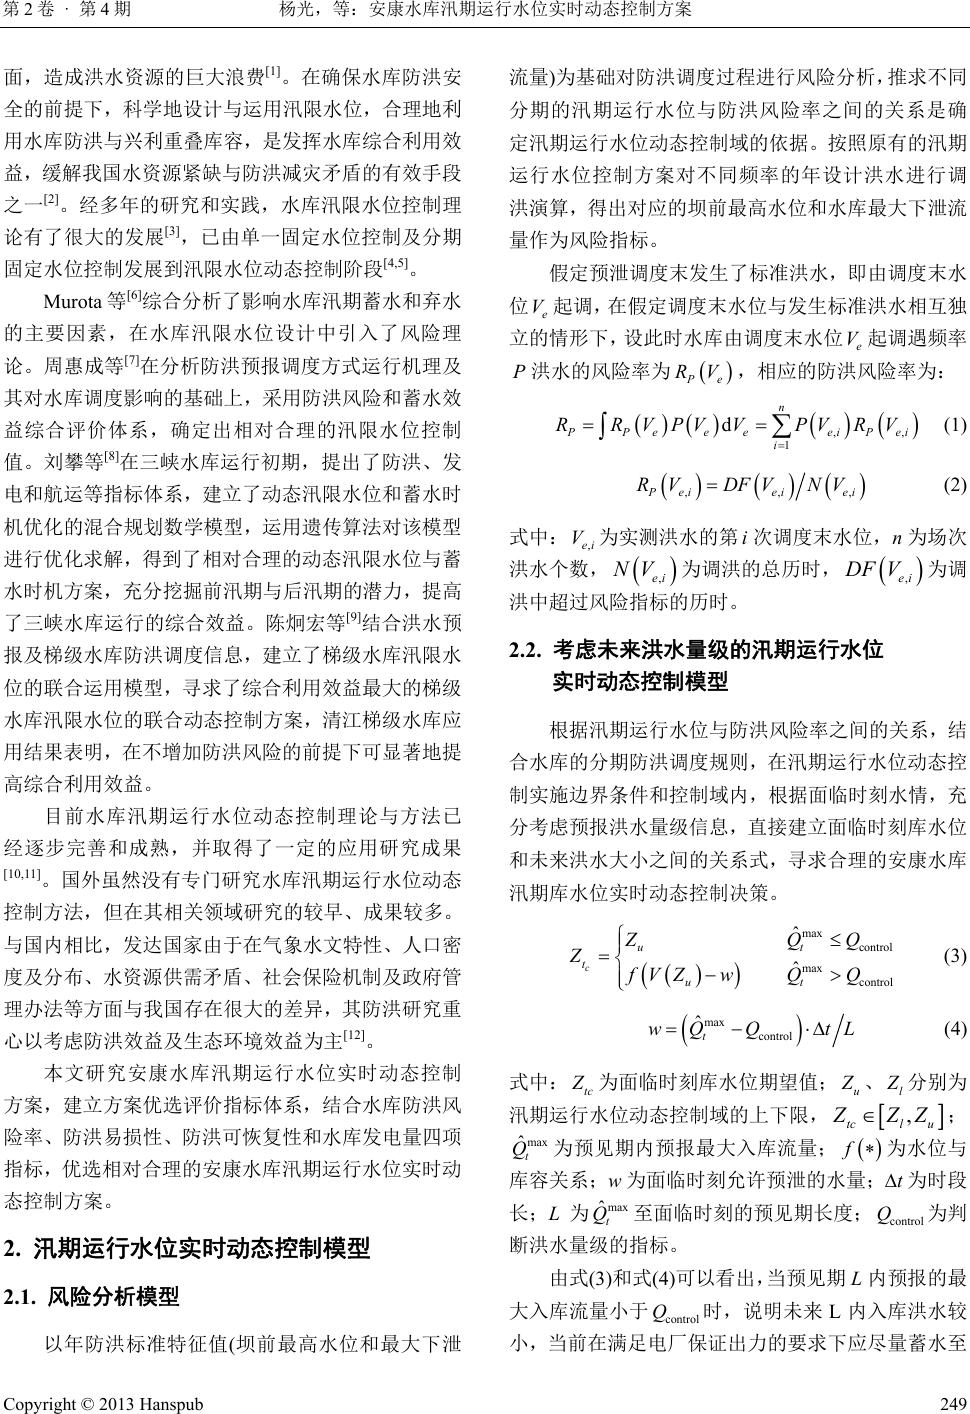 第 2 卷 · 第 4 期
杨光，等：安康水库汛期运行水位实时动态控制方案
面，造成洪水资源的巨大浪费[1]。在确保水库防洪安
全的前提下，科学地设计与运用汛限水位，合理地利
用水库防洪与兴利重叠库容，是发挥水库综合利用效
益，缓解我国水资源紧缺与防洪减灾矛盾的有效手段
之一[2]。经多年的研究和实践，水库汛限水位控制理
论有了很大的发展[3]，已由单一固定水位控制及分期
固定水位控制发展到汛限水位动态控制阶段[4,5]。
Murota 等[6]综合分析了影响水库汛期蓄水和弃水
的主要因素，在水库汛限水位设计中引入了风险理
论。周惠成等[7]在分析防洪预报调度方式运行机理及
其对水库调度影响的基础上，采用防洪风险和蓄水效
益综合评价体系，确定出相对合理的汛限水位控制
值。刘攀等[8]在三峡水库运行初期，提出了防洪、发
电和航运等指标体系，建立了动态汛限水位和蓄水时
机优化的混合规划数学模型，运用遗传算法对该模型
进行优化求解，得到了相对合理的动态汛限水位与蓄
水时机方案，充分挖掘前汛期与后汛期的潜力，提高
了三峡水库运行的综合效益。陈炯宏等[9]结合洪水预
报及梯级水库防洪调度信息，建立了梯级水库汛限水
位的联合运用模型，寻求了综合利用效益最大的梯级
水库汛限水位的联合动态控制方案，清江梯级水库应
用结果表明，在不增加防洪风险的前提下可显著地提
高综合利用效益。
目前水库汛期运行水位动态控制理论与方法已
经逐步完善和成熟，并取得了一定的应用研究成果
[10,11]。国外虽然没有专门研究水库汛期运行水位动态
控制方法，但在其相关领域研究的较早、成果较多。
与国内相比，发达国家由于在气象水文特性、人口密
度及分布、水资源供需矛盾、社会保险机制及政府管
理办法等方面与我国存在很大的差异，其防洪研究重
心以考虑防洪效益及生态环境效益为主[12]。
本文研究安康水库汛期运行水位实时动态控制
方案，建立方案优选评价指标体系，结合水库防洪风
险率、防洪易损性、防洪可恢复性和水库发电量四项
指标，优选相对合理的安康水库汛期运行水位实时动
态控制方案。
2. 汛期运行水位实时动态控制模型
2.1. 风险分析模型
以年防洪标准特征值(坝前最高水位和最大下泄
流量)为基础对防洪调度过程进行风险分析，推求不同
分期的汛期运行水位与防洪风险率之间的关系是确
定汛期运行水位动态控制域的依据。按照原有的汛期
运行水位控制方案对不同频率的年设计洪水进行调
洪演算，得出对应的坝前最高水位和水库最大下泄流
量作为风险指标。
假定预泄调度末发生了标准洪水，即由调度末水
位 V_e 起调，在假定调度末水位与发生标准洪水相互独
立的情形下，设此时水库由调度末水位 V_e 起调遇频率
P 洪水的风险率为 R_P(V_e)，相应的防洪风险率为：
R_P = ∫R_P(V_e)P(V_e)dV_e = ∑_{i=1}^{n} P(V_{e,i})R_P(V_{e,i}) (1)
R_P(V_{e,i}) = DF(V_{e,i})/N(V_{e,i}) (2)
式中：V_{e,i} 为实测洪水的第 i 次调度末水位，n 为场次
洪水个数，N(V_{e,i}) 为调洪的总历时，DF(V_{e,i}) 为调
洪中超过风险指标的历时。
2.2. 考虑未来洪水量级的汛期运行水位
实时动态控制模型
根据汛期运行水位与防洪风险率之间的关系，结
合水库的分期防洪调度规则，在汛期运行水位动态控
制实施边界条件和控制域内，根据面临时刻水情，充
分考虑预报洪水量级信息，直接建立面临时刻库水位
和未来洪水大小之间的关系式，寻求合理的安康水库
汛期库水位实时动态控制决策。
Z_{t_c} = { Z_u  Q̂_t^max ≤ Q_control
f(V(Z_u) − w)  Q̂_t^max > Q_control (3)
w = (Q̂_t^max − Q_control)·Δt/L (4)
式中：Z_tc 为面临时刻库水位期望值；Z_u、Z_l 分别为
汛期运行水位动态控制域的上下限，Z_tc ∈ [Z_l, Z_u]；
Q̂_t^max 为预见期内预报最大入库流量；f(∗) 为水位与
库容关系；w 为面临时刻允许预泄的水量；Δt 为时段
长；L 为 Q̂_t^max 至面临时刻的预见期长度；Q_control 为判
断洪水量级的指标。
由式(3)和式(4)可以看出，当预见期 L 内预报的最
大入库流量小于 Q_control 时，说明未来 L 内入库洪水较
小，当前在满足电厂保证出力的要求下应尽量蓄水至
Copyright © 2013 Hanspub
249